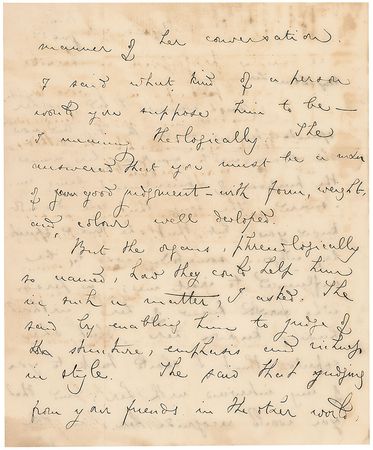 manner of her conversation.
I said what kind of a person
would you suppose him to be —
I meaning theologically. She
answered that you must be a man
of good judgment — with form, weight,
and colour well developed
But the organs, phrenologically
so named, how they could help him
in such a matter, I asked. She
said by enabling him to judge of
structure, emphasis and
in style. She said that judging
from your friends in the other world,